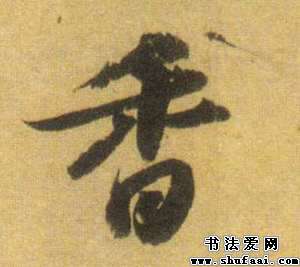 香
书法爱网
www.shufaai.com